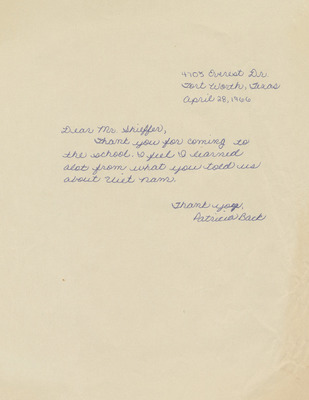 4708 Everest Dr.
Fort Worth, Texas
April 28, 1966
Dear Mr. Shieffer,
Thank you for coming to
the school. I feel I learned
alot from what you told us
about Viet Nam.
Thank you,
Patricia Back